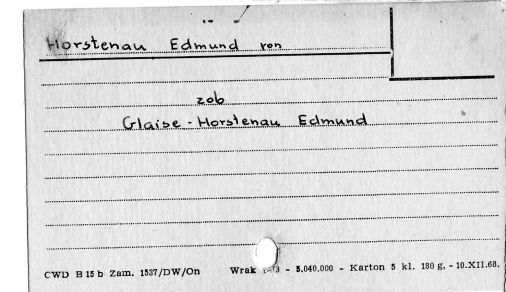 Horstenau Edmund von
zob
Glaise - Horstenau Edmund
CWD B 15 b Zam. 1537/DW/On Wrak - 5.040.000 - Karton 5 kl. 180 g. - 10.XII.68.